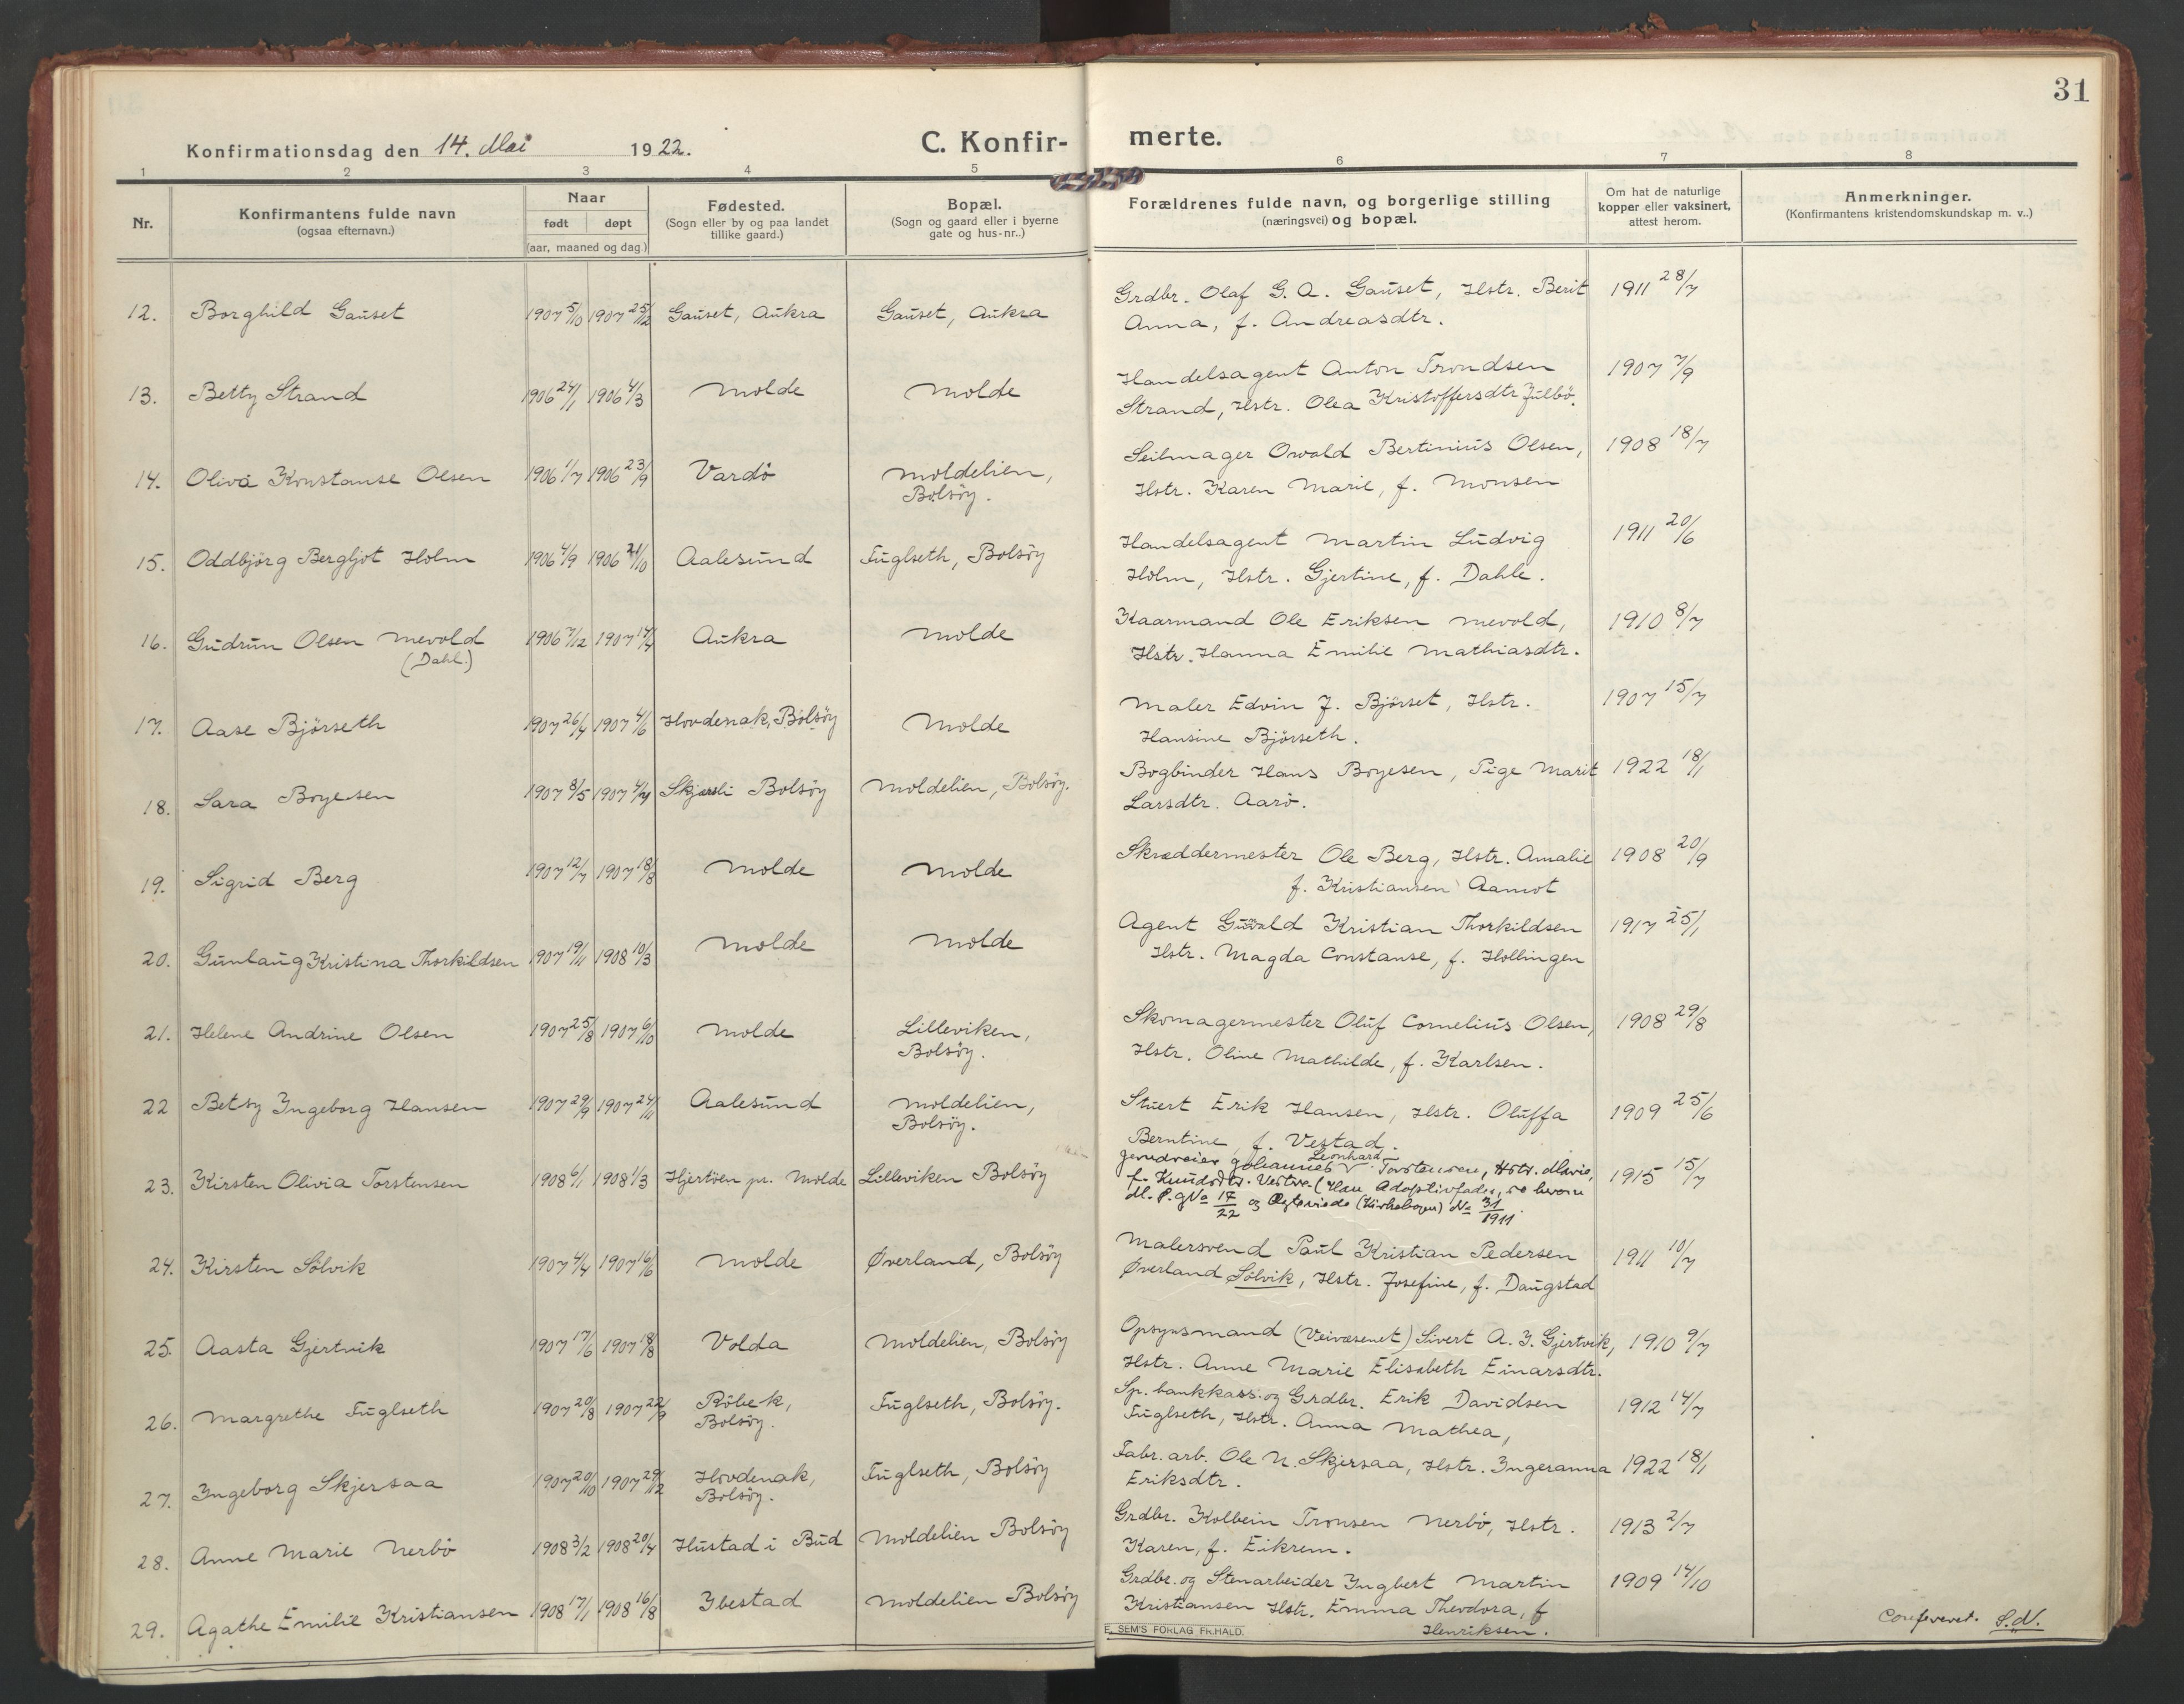 31
Konfirmationsdag den 14. Mai 1922.
C. Konfir- merte.
1 2 3 4 5 6 7 8
Nr.
Konfirmantens fulde navn
(ogsaa efternavn.)
Naar
født døpt
(aar, maaned og dag.)
Fødested.
(Sogn eller by og paa landet
tillike gaard.)
Bopæl.
(Sogn og gaard eller i byerne
gate og hus-nr..)
Forældrenes fulde navn, og borgerlige stilling
(næringsvei) og bopæl.
Om hat de naturlige
kopper eller vaksinert,
attest herom.
Anmerkninger.
(Konfirmantens kristendomskundskap m. v..)
12. Borghild Gauset 1907 5/10 1907 25/12 Gauset, Aukra Gauset, Aukra Grdbr. Olaf G. A. Gauset, Hstr. Berit 1911 28/7
Anna, f. Andreasdtr.
13. Betty Strand 1906 24/1 1906 4/3 Molde Molde Handelsagent Anton Trondsen 1907 7/9
Strand, Hstr. Olea Kristoffersdtr Julbö.
14. Oliva Konstanse Olsen 1906 1/7 1906 23/9 Vardö Moldelien, Seilmager Osvald Bertinius Olsen, 1908 18/7
Bolsöy. Hstr. Karen Marie, f. Monsen
15. Oddbjörg Bergljot Holm 1906 4/9 1906 21/10 Aalesund Fuglseth, Bolsöy Handelsagent Martin Ludvig 1911 20/6
Holm, Hstr. Gjertine, f. Dahle.
16. Gudrun Olsen Mevold 1906 7/12 1907 14/4 Aukra Molde Kaarmand Ole Eriksen Mevold, 1910 8/7
(Dahl.) Hstr. Hanna Emilie Mathiasdtr.
17. Aase Björseth 1907 26/4 1907 4/6 Hovdenak, Bolsöy Molde Maler Edvin J. Björset, Hstr. 1907 15/7
Hansine Björseth.
18. Sara Boyesen 1907 8/5 1907 4/7 Skjærli Bolsöy Moldelien, Bolsöy. Bogbinder Hans Boyesen, Pige Marit 1922 18/1
Larsdtr. Aarö.
19. Sigrid Berg 1907 12/7 1907 18/8 Molde Molde Skræddermester Ole Berg, Hstr. Amalie 1908 20/9
f. Kristiansen Aamot
20. Gunlaug Kristina Thorkildsen 1907 19/11 1908 10/3 Molde Molde Agent Gunvald Kristian Thorkildsen 1917 25/1
Hstr. Magda Constanse, f. Hollingen
21. Helene Andrine Olsen 1907 25/8 1907 6/10 Molde Lilleviken, Skomagermester Oluf Cornelius Olsen, 1908 29/8
Bolsöy. Hstr. Oline Mathilde, f. Karlsen.
22 Betsy Ingeborg Hansen 1907 29/9 1907 24/11 Aalesund Moldelien, Stuert Erik Hansen, Hstr. Oluffa 1909 25/6
Bolsöy. Berntine, f. Vestad.
23. Kirsten Olivia Torstensen 1908 6/1 1908 1/3 Hjertöen pr. Molde Lilleviken Bolsöy Johannes Leonhard Torstensen, Hstr. Marie, 1915 15/7
f. Knudsdtr. (Han Adoptivfader,
No 17/22 og (Kirkebogen) No 31/1911
24. Kirsten Sölvik 1907 4/4 1907 16/6 Molde Øverland, Bolsöy Malersvend Paul Kristian Pedersen 1911 10/7
Øverland Sölvik, Hstr. Josefine, f. Daugstad
25. Aasta Gjertvik 1907 17/6 1907 18/8 Volda Moldelien, Bolsöy Opsynsmand (Veivæsenet) Sivert A. I. Gjertvik, 1910 9/7
Hstr. Anne Marie Elisabeth Einarsdtr.
26. Margrethe Fuglseth 1907 20/8 1907 22/9 Röbek, Fuglseth, Bolsöy. Sp. bankkass. og Grdbr. Erik Davidsen 1912 14/7
Bolsöy. Fuglseth, Hstr. Anna Mathea,
27. Ingeborg Skjersaa 1907 20/10 1907 29/12 Hovdenak, Fuglseth, Bolsöy Fabr. arb. Ole N. Skjersaa, Hstr. Ingeranna 1922 18/1
Bolsöy. Eriksdtr.
28. Anne Marie Nerbö 1908 3/2 1908 20/4 Hustad i Bud Moldelien Bolsöy Grdbr. Kolbein Tronsen Nerbö, Hstr. 1913 2/7
Karen, f. Eikrem.
29. Agathe Emilie Kristiansen 1908 17/1 1908 16/8 Ibestad Moldelien Bolsöy Grdbr. og Stenarbeider Ingbert Martin 1909 14/10
Kristiansen Hstr. Emma Theodora, f
Henriksen.
Confereret. S.N.
E. SEM'S FORLAG FR.HALD.